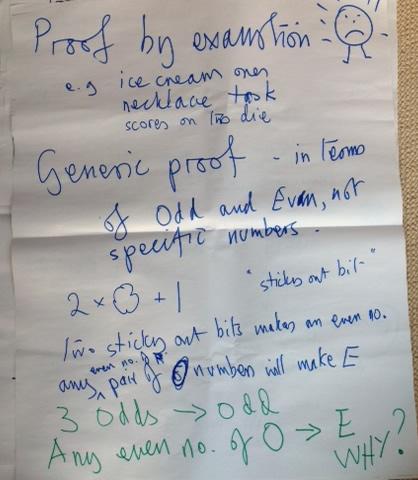 Proof by exaustion
e.g ice cream ones
necklace task
scores on two die
Generic proof - in terms
of Odd and Even, not
specific numbers.
2 × + 1 "sticky out bit"
Two sticky out bits makes an even no.
any even no. of pair of O numbers will make E
3 Odds → Odd
Any even no. of O → E
WHY?